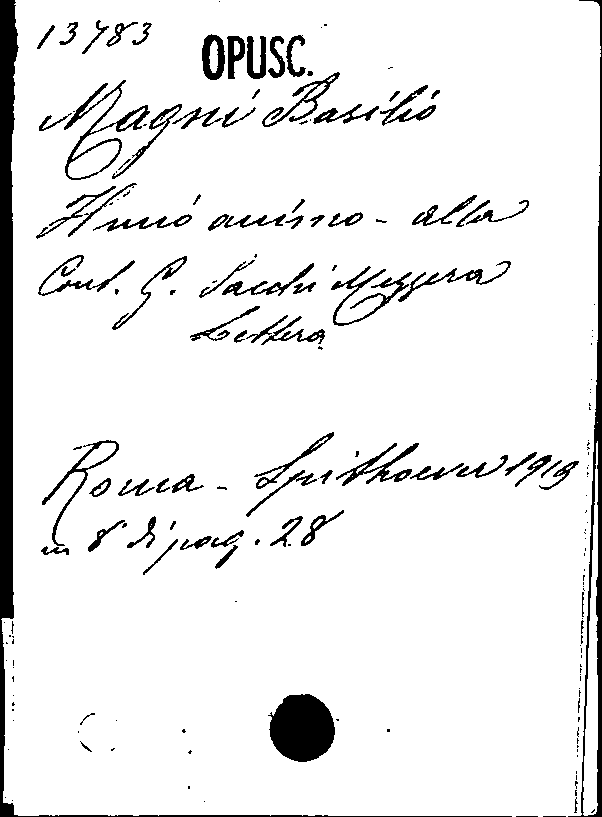 13783
OPUSC.
Magni Basilio
Il mio animo - alla
Cont. G. Sacchi Mezzera
Lettera
Roma - Spithoever 1919
in 8 di pag. 28